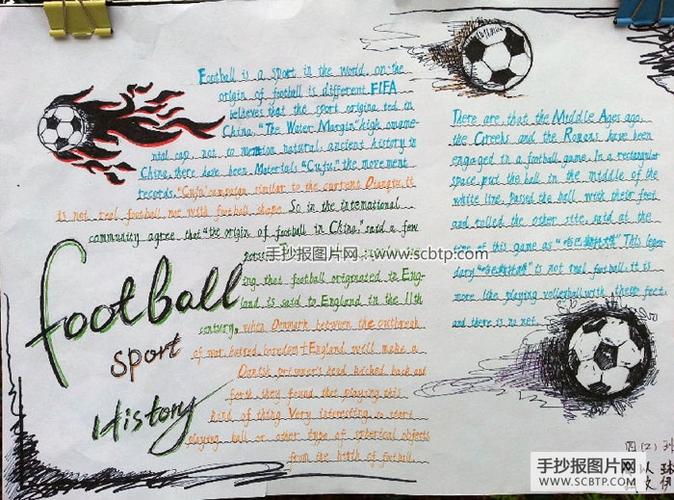 Football is a sport in the world, on the
origin of football is different. FIFA
believes that the sport origina ted in
China, "The Water Margin" high orname-
ntal cap, not to mention natural, ancient history in
China, there have been Materials "Cuju" the movement
records. "Cuju" campaign similar to the current it
is not real football me with football shape. So in the international
community agree that "the origin of football in China," said a few
ing that football originated in Eng-
land is said to England in the 11th
century, when Denmark between the outbreak
of England will make a
prisoner's head kicked back and
forth they found that playing this
kind of thing Very interesting to start
playing ball or other type of spherical objects
from the birth of football.
football
sport
History
There are that the Middle Ages ago,
the Greeks and the Romans have been
engaged in a football game. In a rectangular
space, put the ball in the middle of the
white line, Passed the ball with their feet
and rolled the other site, said at the
time of this game as This legen-
dary is not real football, it is
more like playing volleyball with these feet,
and there is no net.
手抄报图片网 www.scbtp.com
四(2)班
手抄报图片网
WWW.SCBTP.COM